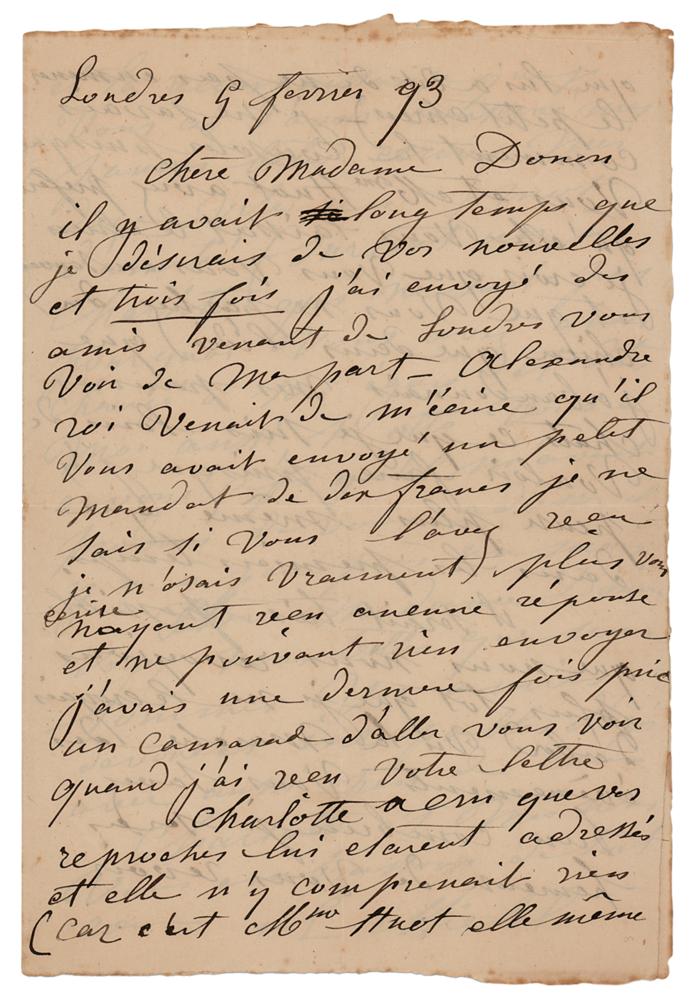 Londres 9 fevrier 93
chère Madame Donon
il y avait si long temps que
je désirais de vos nouvelles
et trois fois j'ai envoyé des
amis venant de Londres vous
Voir de Ma part – Alexandre
roi Venait de m'écrire qu'il
Vous avait envoyé un petit
Mandat de dix francs je ne
sais si vous l'avez recu
je n'osais vraiment plus vous
écrire
n'ayant recu aucune réponse
et ne pouvant rien envoyer
j'avais une derniere fois prié
un camarade d'aller vous voir
quand j'ai recu Votre lettre
Charlotte a cru que vos
reproches lui etaient adressés
et elle n'y comprenait rien
(car c'est Mme Huot elle même